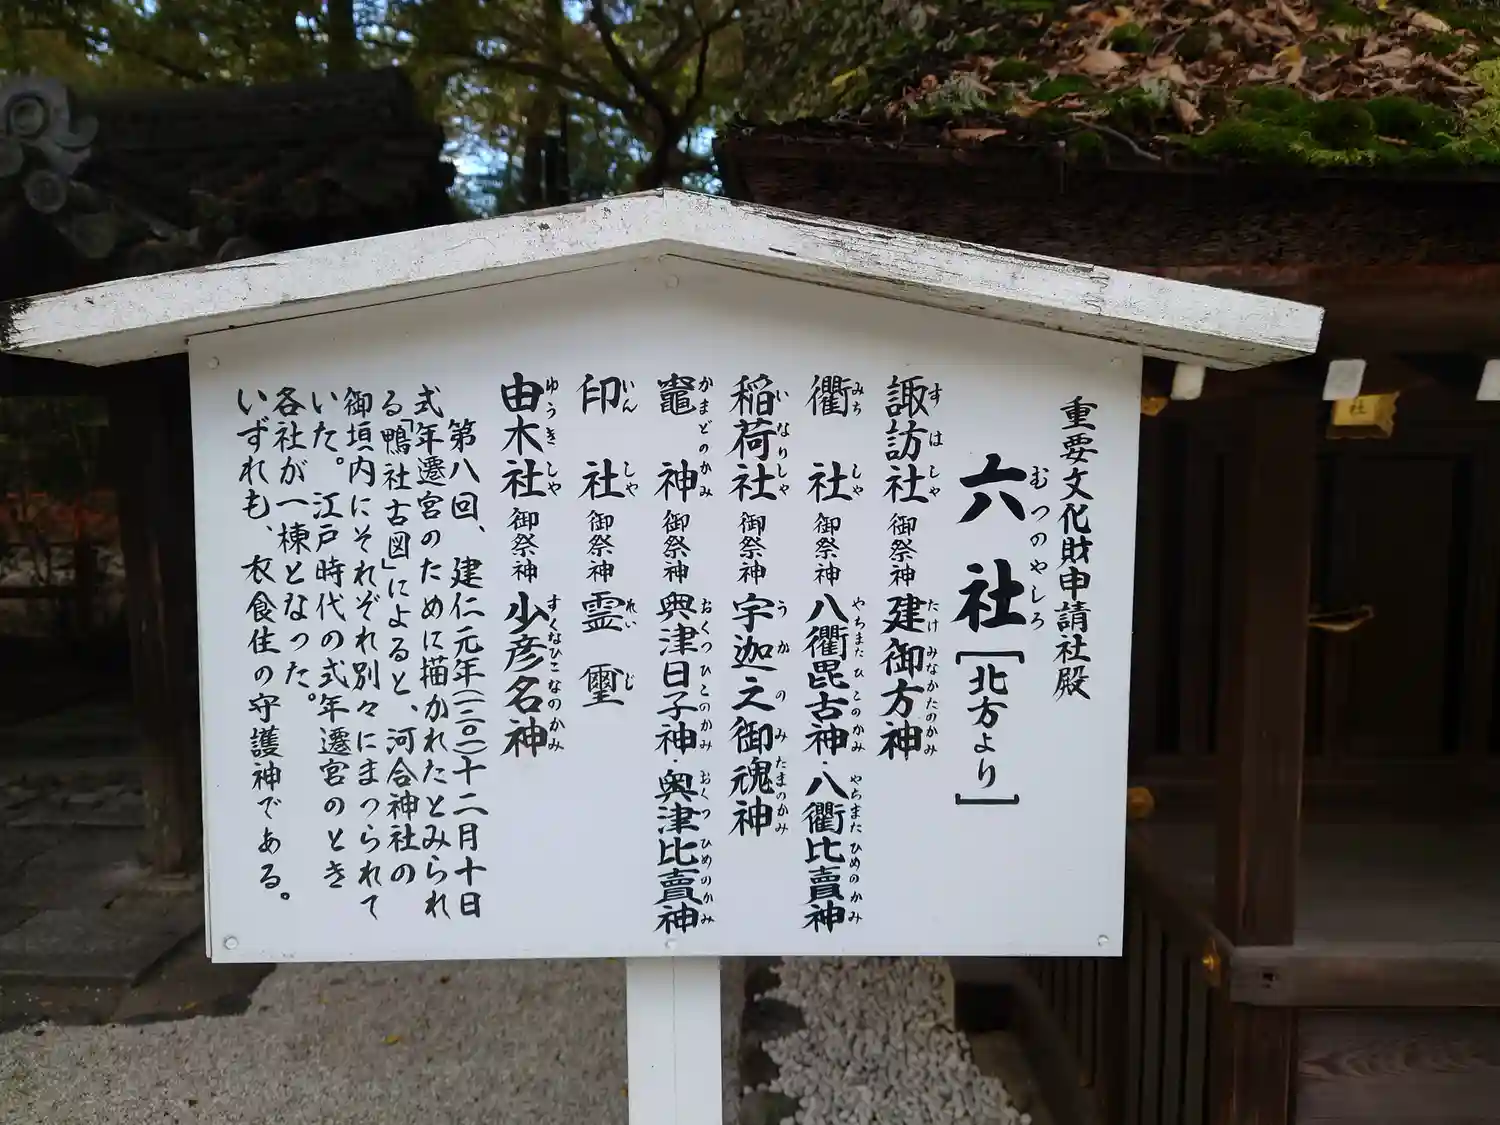 重要文化財申請社殿
六社[北方より]
むつのやしろ
諏訪社 御祭神 建御方神
すはしや たけみなかたのかみ
衢社 御祭神 八衢毘古神・八衢比賣神
みちしや やちまたひこのかみ やちまたひめのかみ
稲荷社 御祭神 宇迦之御魂神
いなりしや うかのみたまのかみ
竈神 御祭神 奥津日子神・奥津比賣神
かまどのかみ おくつひこのかみ おくつひめのかみ
印社 御祭神 霊璽
いんしや れいじ
由木社 御祭神 少彦名神
ゆうきしや すくなひこなのかみ
第八回、建仁元年(一二〇一)十二月十日
式年遷宮のために描かれたとみられ
る「鴨社古図」によると、河合神社の
御垣内にそれぞれ別々にまつられて
いた。江戸時代の式年遷宮のとき
各社が一棟となった。
いずれも、衣食住の守護神である。